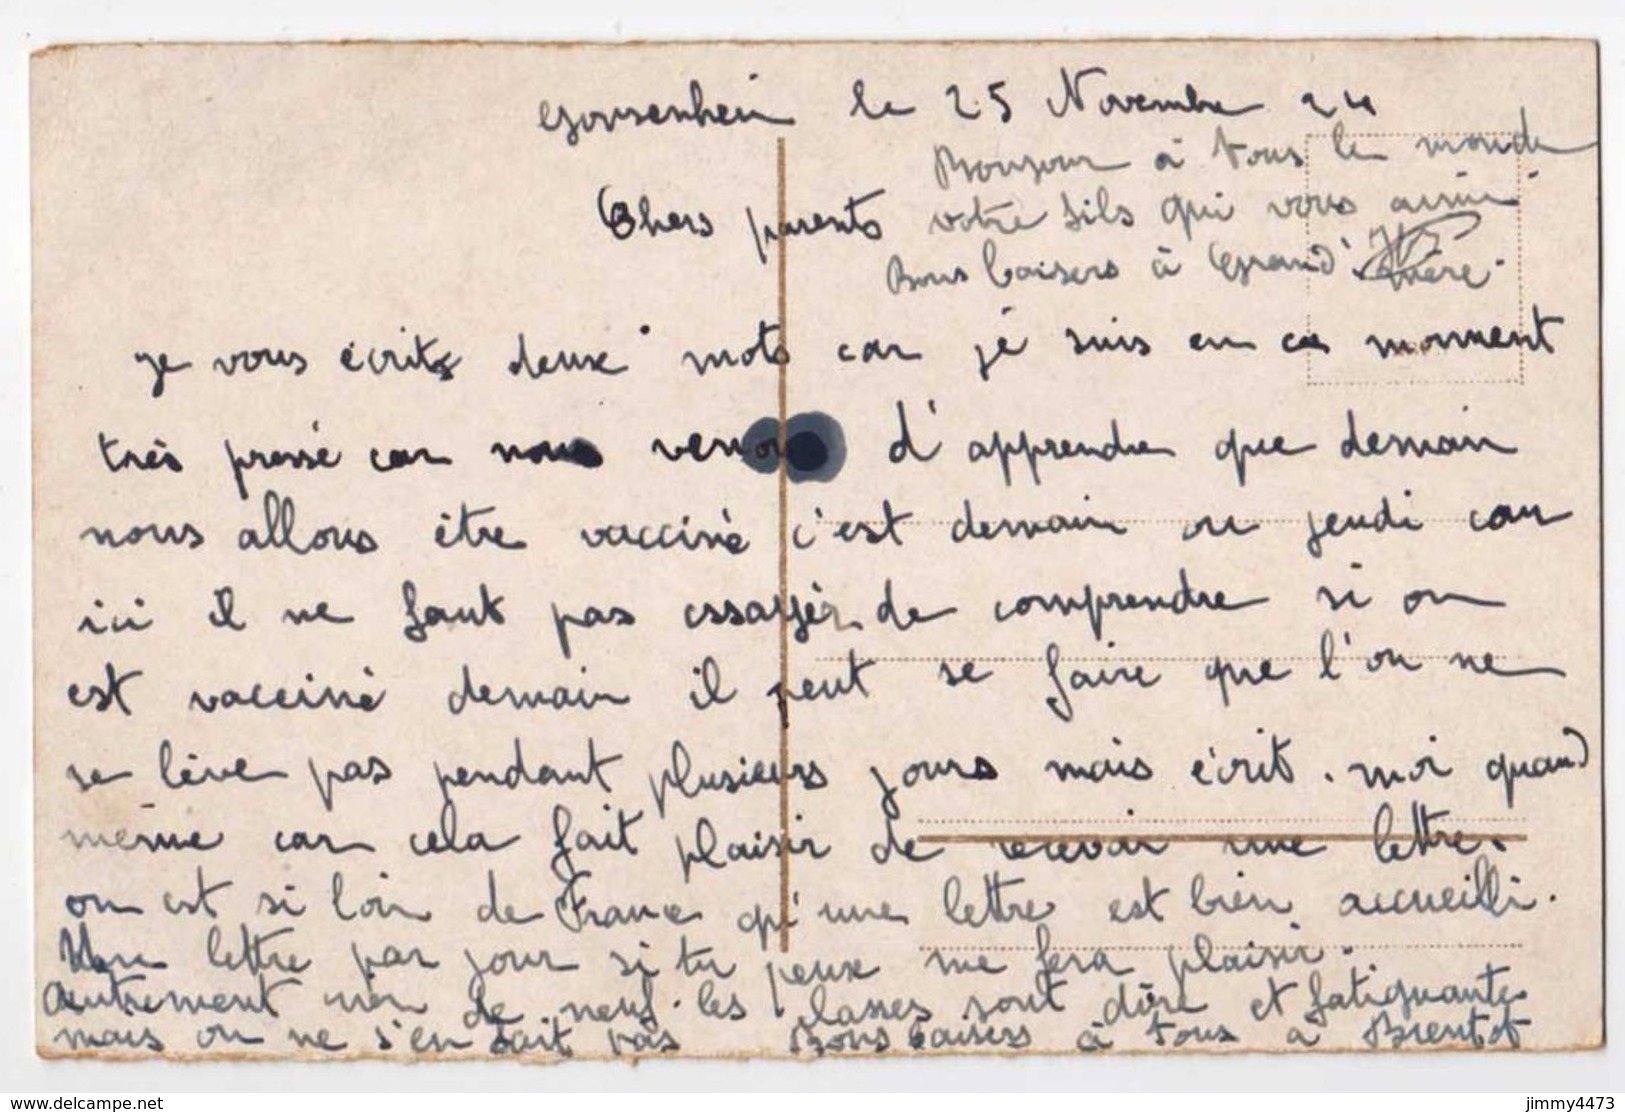 Gonsenheim le 25 Novembre 24
Bonjour à tous le monde
Chers parents votre fils qui vous aime
Bons baisers à Grand' mère.
je vous écrits deux mots car je suis en ce moment
très pressé car nous venons d'apprendre que demain
nous allons être vacciné c'est demain ou jeudi car
ici il ne faut pas essayér de comprendre si on
est vacciné demain il peut se faire que l'on ne
se lève pas pendant plusieurs jours mais écrit. moi quand
même car cela fait plaisir de recevoir une lettre.
on est si loin de France qu'une lettre est bien accueilli.
Une lettre par jour si tu peux me fera plaisir.
autrement rien de neuf. les classes sont dure et fatiguante
mais on ne s'en fait pas Bons baisers à tous à Brentot
www.delcampe.net
jimmy4473